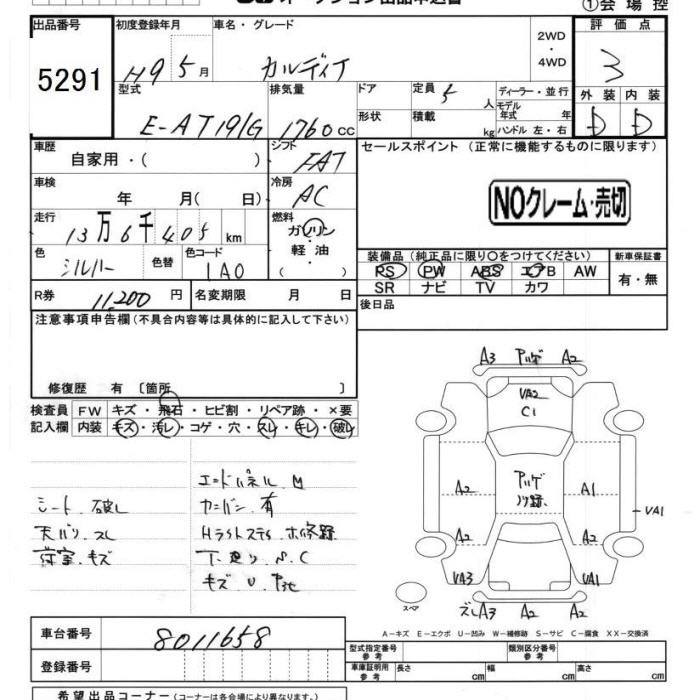 ①会場控
出品番号 初度登録年月 車名・グレード 2WD・4WD 評価点
5291 H9 5月 カルディナ 3
型式 排気量 ドア 定員 5人 ディーラー・並行 外装 内装
モデル年式 年
形状 積載 kg ハンドル 左・右
E-AT191G 1760cc D D
車歴 シフト セールスポイント (正常に機能するものに限ります)
自家用・( ) FAT
車検 冷房
年 月( 日) AC
NOクレーム・売切
走行 燃料
13万6千405km ガソリン・軽油
色 色替 色コード
シルバー 1A0
装備品 (純正品に限り○をつけてください) 新車保証書
PS PW ABS エアB AW 有・無
SR ナビ TV カワ
R券 11,200円 名変期限 月 日
後日品
注意事項申告欄 (不具合内容等は具体的に記入して下さい)
修復歴 有 [箇所 ]
検査員 FW キズ・飛石・ヒビ割・リペア跡・×要
記入欄 内装 キズ・汚レ・コゲ・穴・スレ・キレ・破レ
エンドパネル M
シート 破レ カーボン 有
天バリ スレ
荷室 キズ
下廻り S、C
キズ U
A3 アリゲ A2
VA2
C1
アリゲ
A2 A1
VA1
A2 A2
VA3 VA1
スペア
ズレA3 A2 A2
A-キズ E-エクボ U-凹み W-補修跡 S-サビ C-腐食 XX-交換済
車台番号 8011658
型式指定番号 参考 類別区分番号 参考
登録番号
車庫証明用 参考 長さ cm 幅 cm 高さ cm
希望出品コーナー (コーナーは各会場により異なります。)